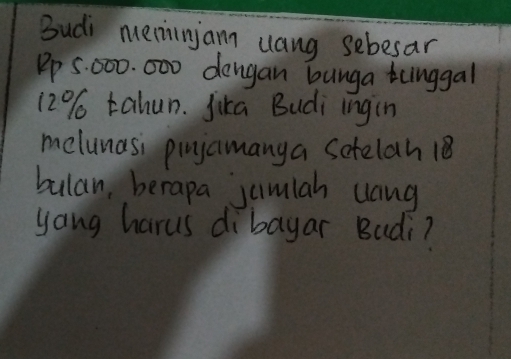 Budi meminjam uang sebesar
Rp 5.000.000 dengan bunga tunggal
12% tahun. Jika Budi ingin
melunasi pinjamanya setelah 18
bulan, berapa jumlah uang
yang harus dibayar Budi?